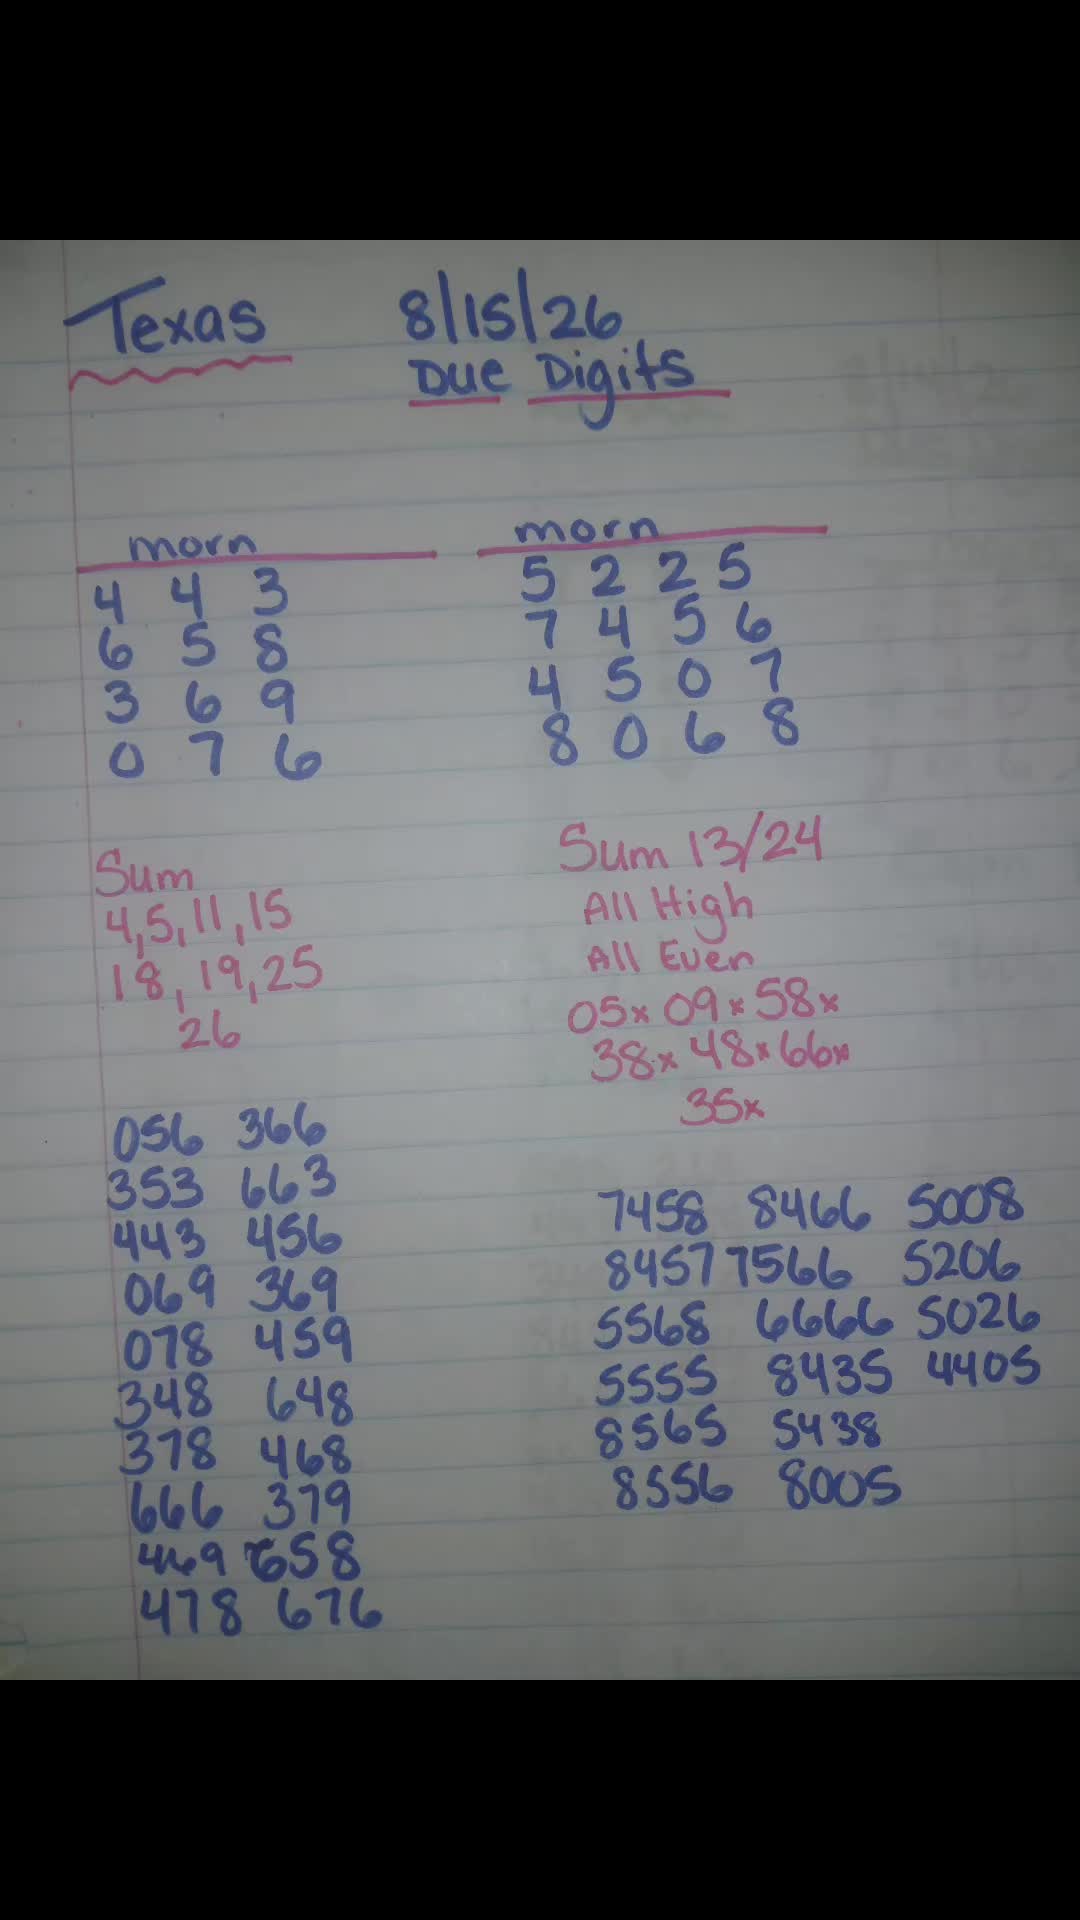 Texas 8/15/26
Due Digits
morn
4 4 3
6 5 8
3 6 9
0 7 6
morn
5 2 2 5
7 4 5 6
4 5 0 7
8 0 6 8
Sum
4,5,11,15
18,19,25
26
Sum 13/24
All High
All Even
05x 09x 58x
38x 48x 66x
35x
056 366
353 663
443 456
069 369
078 459
348 648
378 468
666 379
469 658
478 676
7458 8466 5008
8457 7566 5206
5568 6666 5026
5555 8435 4405
8565 5438
8556 8005